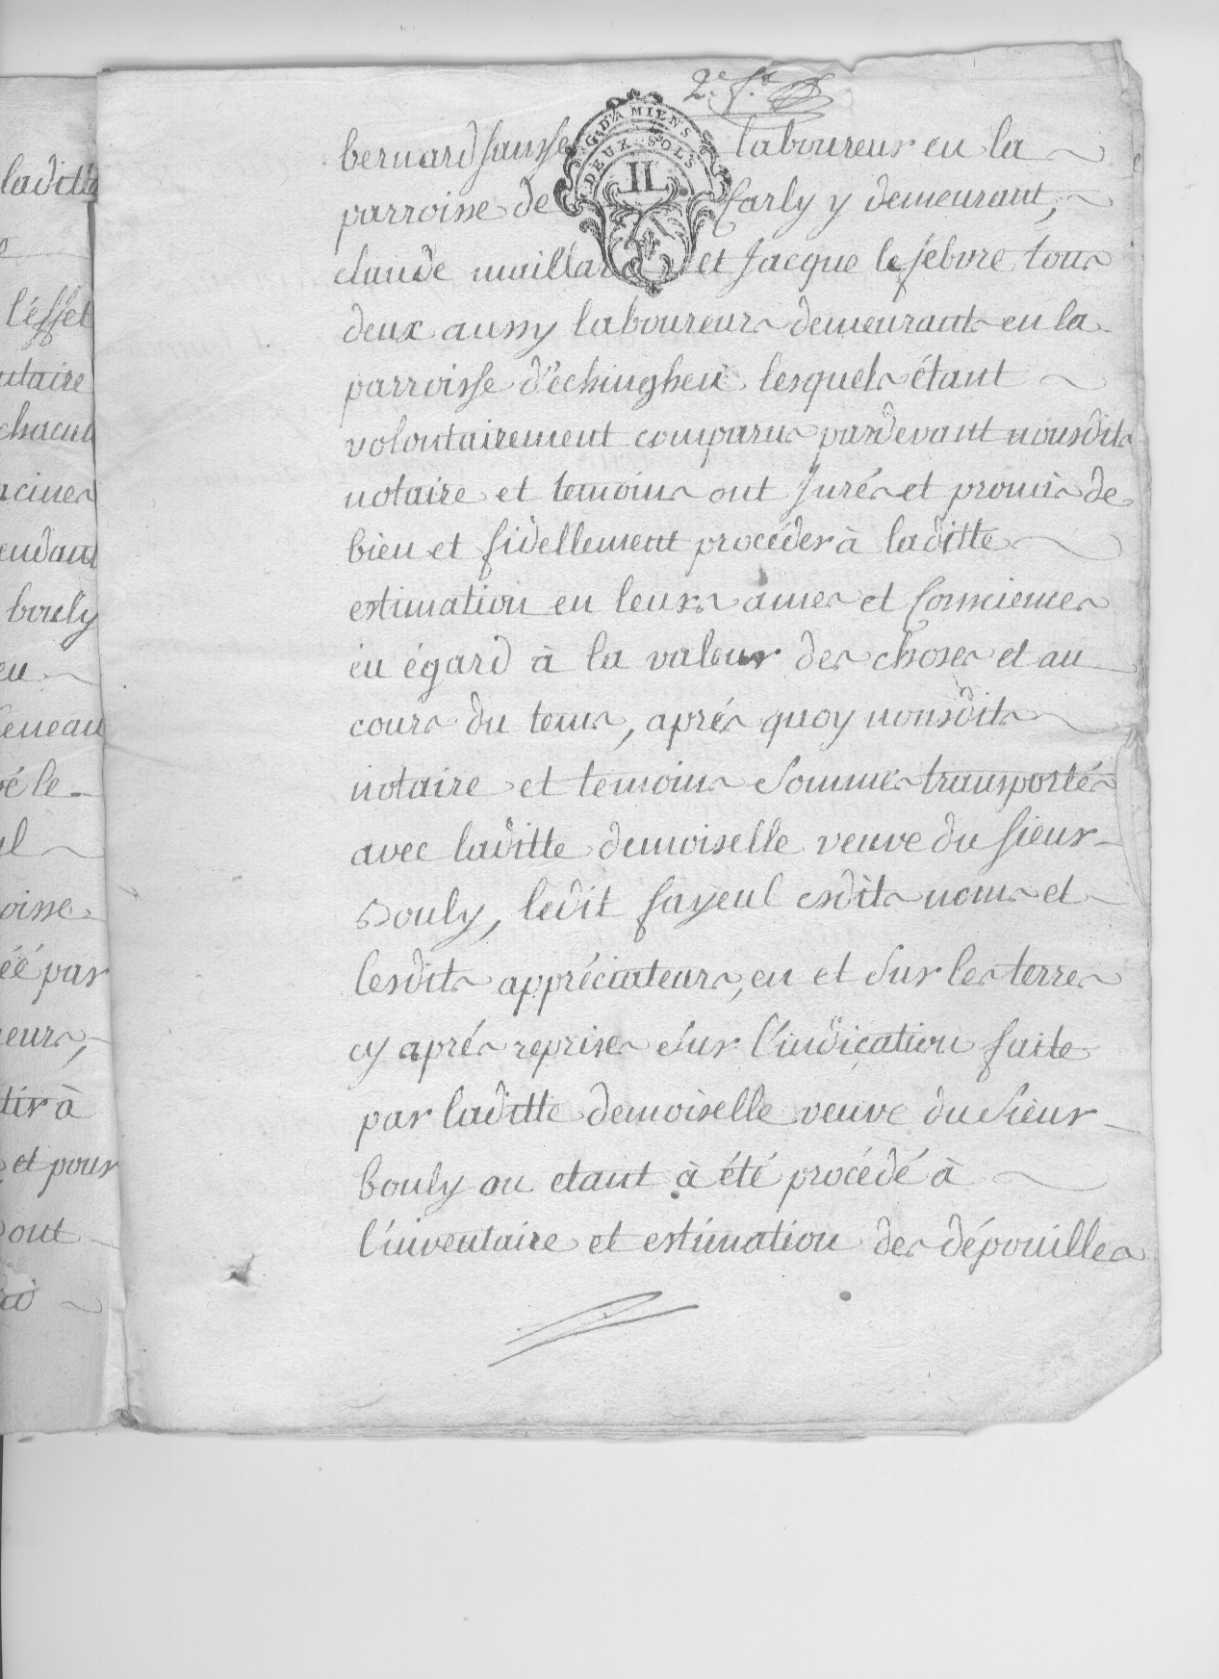 2e
G. D'AMIENS
DEUX SOLS
II.
bernard sausse laboureur en la
parroisse de Carly y demeurant,
claude maillard et Jacque le febvre tous
deux aussy laboureurs demeurants en la
parroisse d'echinghen lesquels étant
volontairement comparus pardevant nousdits
notaire et temoins ont Jurés et promis de
bien et fidellement procéder à laditte
estimation en leurs ames et Consciences
eu égard à la valeur des choses et au
cours du tems, aprés quoy nousdits
notaire et temoins sommes transportés
avec laditte demoiselle veuve du sieur
Bouly, ledit fayeul esdits noms et
lesdits appréciateurs, en et sur les terres
cy aprés reprises sur l'indication faite
par laditte demoiselle veuve du sieur
bouly ou etant à été procédé à
l'inventaire et estimation des dépouilles
laditte
l'effet
chacun
bouly
eu
é le
oisse
éé par
eurs,
tir à
et pour
ont